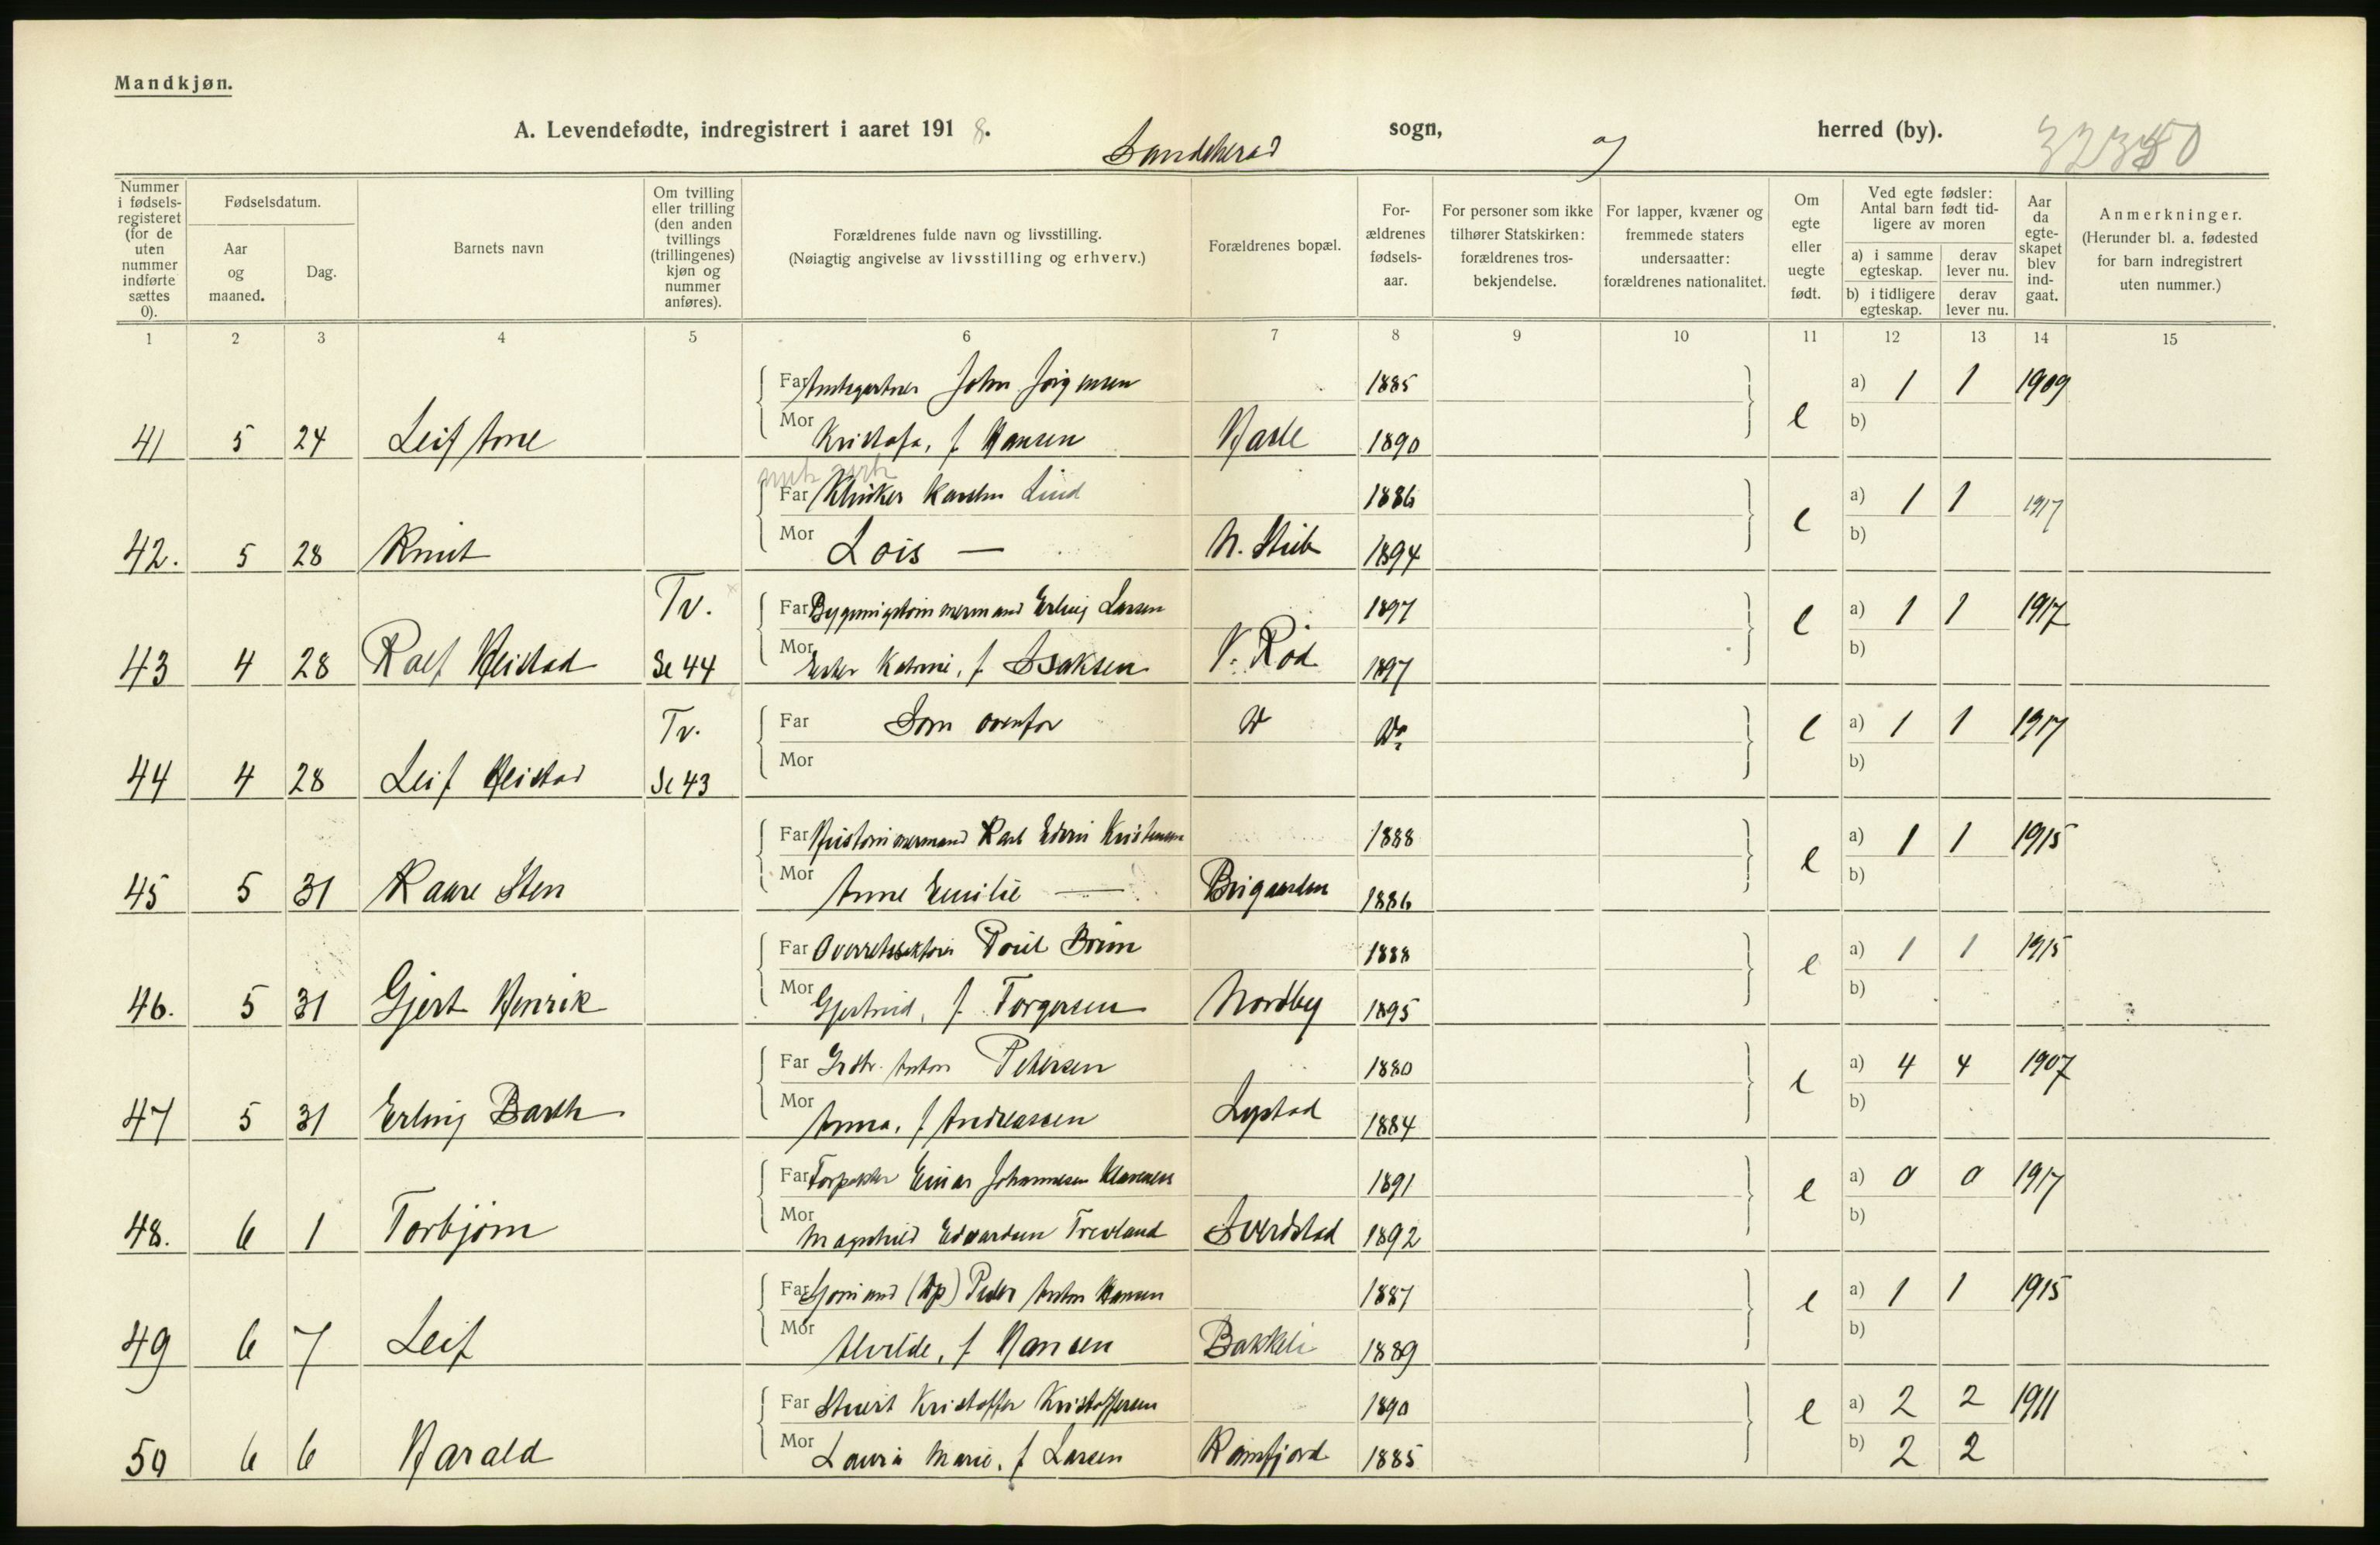 Mandkjøn.
A. Levendefødte, indregistrert i aaret 1918. Sandeherad sogn, herred (by).
Nummer i fødselsregisteret (for de uten nummer indførte sættes 0).
Fødselsdatum.
Aar og maaned.
Dag.
Barnets navn
Om tvilling eller trilling (den anden tvillings (trillingenes) kjøn og nummer anføres).
Forældrenes fulde navn og livsstilling.
(Nøiagtig angivelse av livsstilling og erhverv.)
Forældrenes bopæl.
Forældrenes fødselsaar.
For personer som ikke tilhører Statskirken: forældrenes trosbekjendelse.
For lapper, kvæner og fremmede staters undersaatter: forældrenes nationalitet.
Om egte eller uegte født.
Ved egte fødsler: Antal barn født tidligere av moren
a) i samme egteskap. derav lever nu.
b) i tidligere egteskap. derav lever nu.
Aar da egteskapet blev indgaat.
Anmerkninger.
(Herunder bl. a. fødested for barn indregistrert uten nummer.)
1 2 3 4 5 6 7 8 9 10 11 12 13 14 15
Far John Jørgensen 1885 a) 1 1 1909
41 5 24 Leif Arne Mor Kristofa, f. Hansen Hasle 1890 e b)
Far Lind 1886 a) 1 1 1917
42. 5 28 Knut Mor Lois — 1894 e b)
Tv. Far Bygningstømmermand Erling Larsen 1897 a) 1 1 1917
43 4 28 Ralf Heistad Se 44 Mor Ester Katrine, f. Isaksen V. Rød 1897 e b)
Tv. Far Som ovenfor Do e a) 1 1 1917
44 4 28 Leif Heistad Se 43 Mor b)
Far Karl Edvin Kristensen 1888 a) 1 1 1915
45 5 31 Kaare Sten Mor Anne Emilie — 1886 e b)
Far Poul Bruun 1888 a) 1 1 1915
46. 5 31 Gjert Henrik Mor Gjertrud, f. Torgersen Nordby 1895 e b)
Far Anton Petersen 1880 a) 4 4 1907
47 5 31 Erling Barth Mor Anna, f. Andreassen Lystad 1884 e b)
Far Einar Johannesen Klavenes 1891 a) 0 0 1917
48. 6 1 Torbjørn Mor Magnhild Edvardsen Trevland Sverdstad 1892 e b)
Far Peder Anton Hansen 1887 a) 1 1 1915
49 6 7 Leif Mor Alvilde, f. Hansen Bakkeli 1889 e b)
Far Stuert Kristoffer Kristoffersen 1890 e a) 2 2 1911
50 6 6 Harald Mor Laura Marie, f. Larsen Ramsfjord 1885 b) 2 2